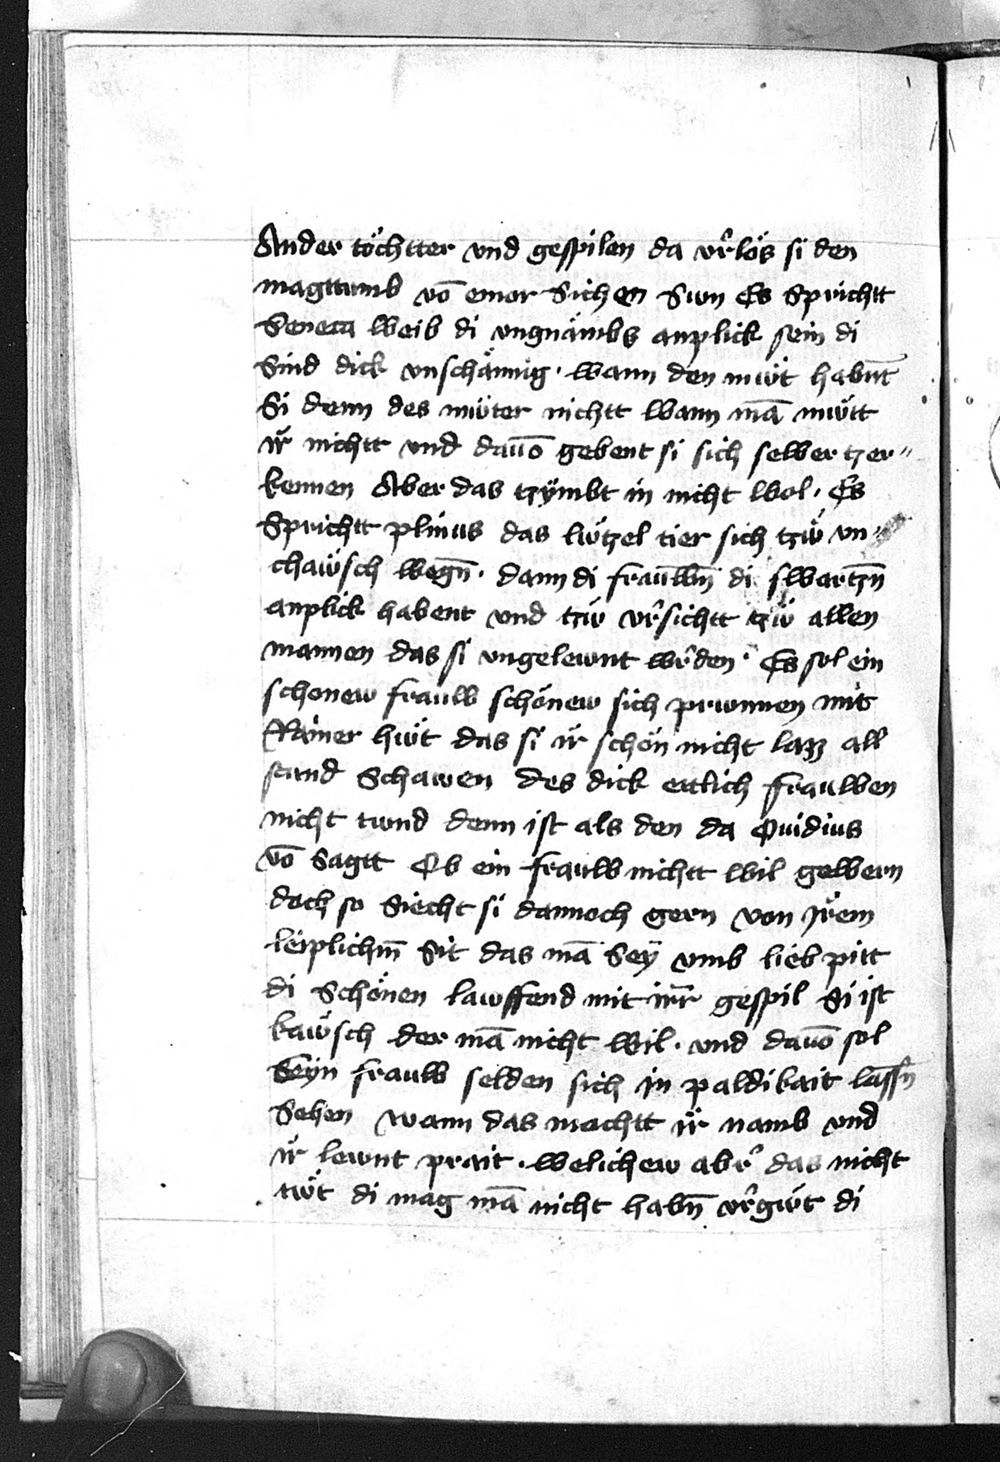 Ander töchtter vnd gespilen da vͬlös si den
magttumb vō emor Sichen Sun Es Sprichtt
Seneca Weib di vngnämbs anplick sein di
Sind dick vnschämig · Wann den mẅt habn̄t
Si denn des mẅter nichtt Wann mā mẅtt
ir̈ nichtt vnd dauō gebent si sich selber tzer〃
kennen Aber das tzÿmbt in nicht Wol · Es
Sprichtt plinius das lützel tier sich tzẅ vn〃
chaẅsch Wegn̄ · dann di frauͤwn̄ di swartzn̄
anplick habent vnd tzẅ vͬsichtt tzẅ allen
mannen das si vngelewnt Wͬden · Es sol ein
schonew frauw schönew sich prwnnen mit
Rainer hẅt das si ir̈ schön nicht lazz all
stund Schawen des dick ettlich frauwen
nicht tund denn ist als den da Ouidius
vō Sagtt Ob ein frauw nichtt Wil gewern
doch so Siecht si dannoch gern von Jrem
leiplichm̄ Sit das mā Seÿ vmb lieb pitt
di Schönen lawffend mit irr̄ gespil Si ist
kaẅsch der mā nicht Wil · vnd dauō sol
Seyn frauw selden sich in paldikait lassn̄
Sehen wann das machtt ir̈ namb vnd
ir̈ lewnt prait · Welichew abͬ das nicht
tẅt di mag mā nicht habn̄ vͬgẅt di